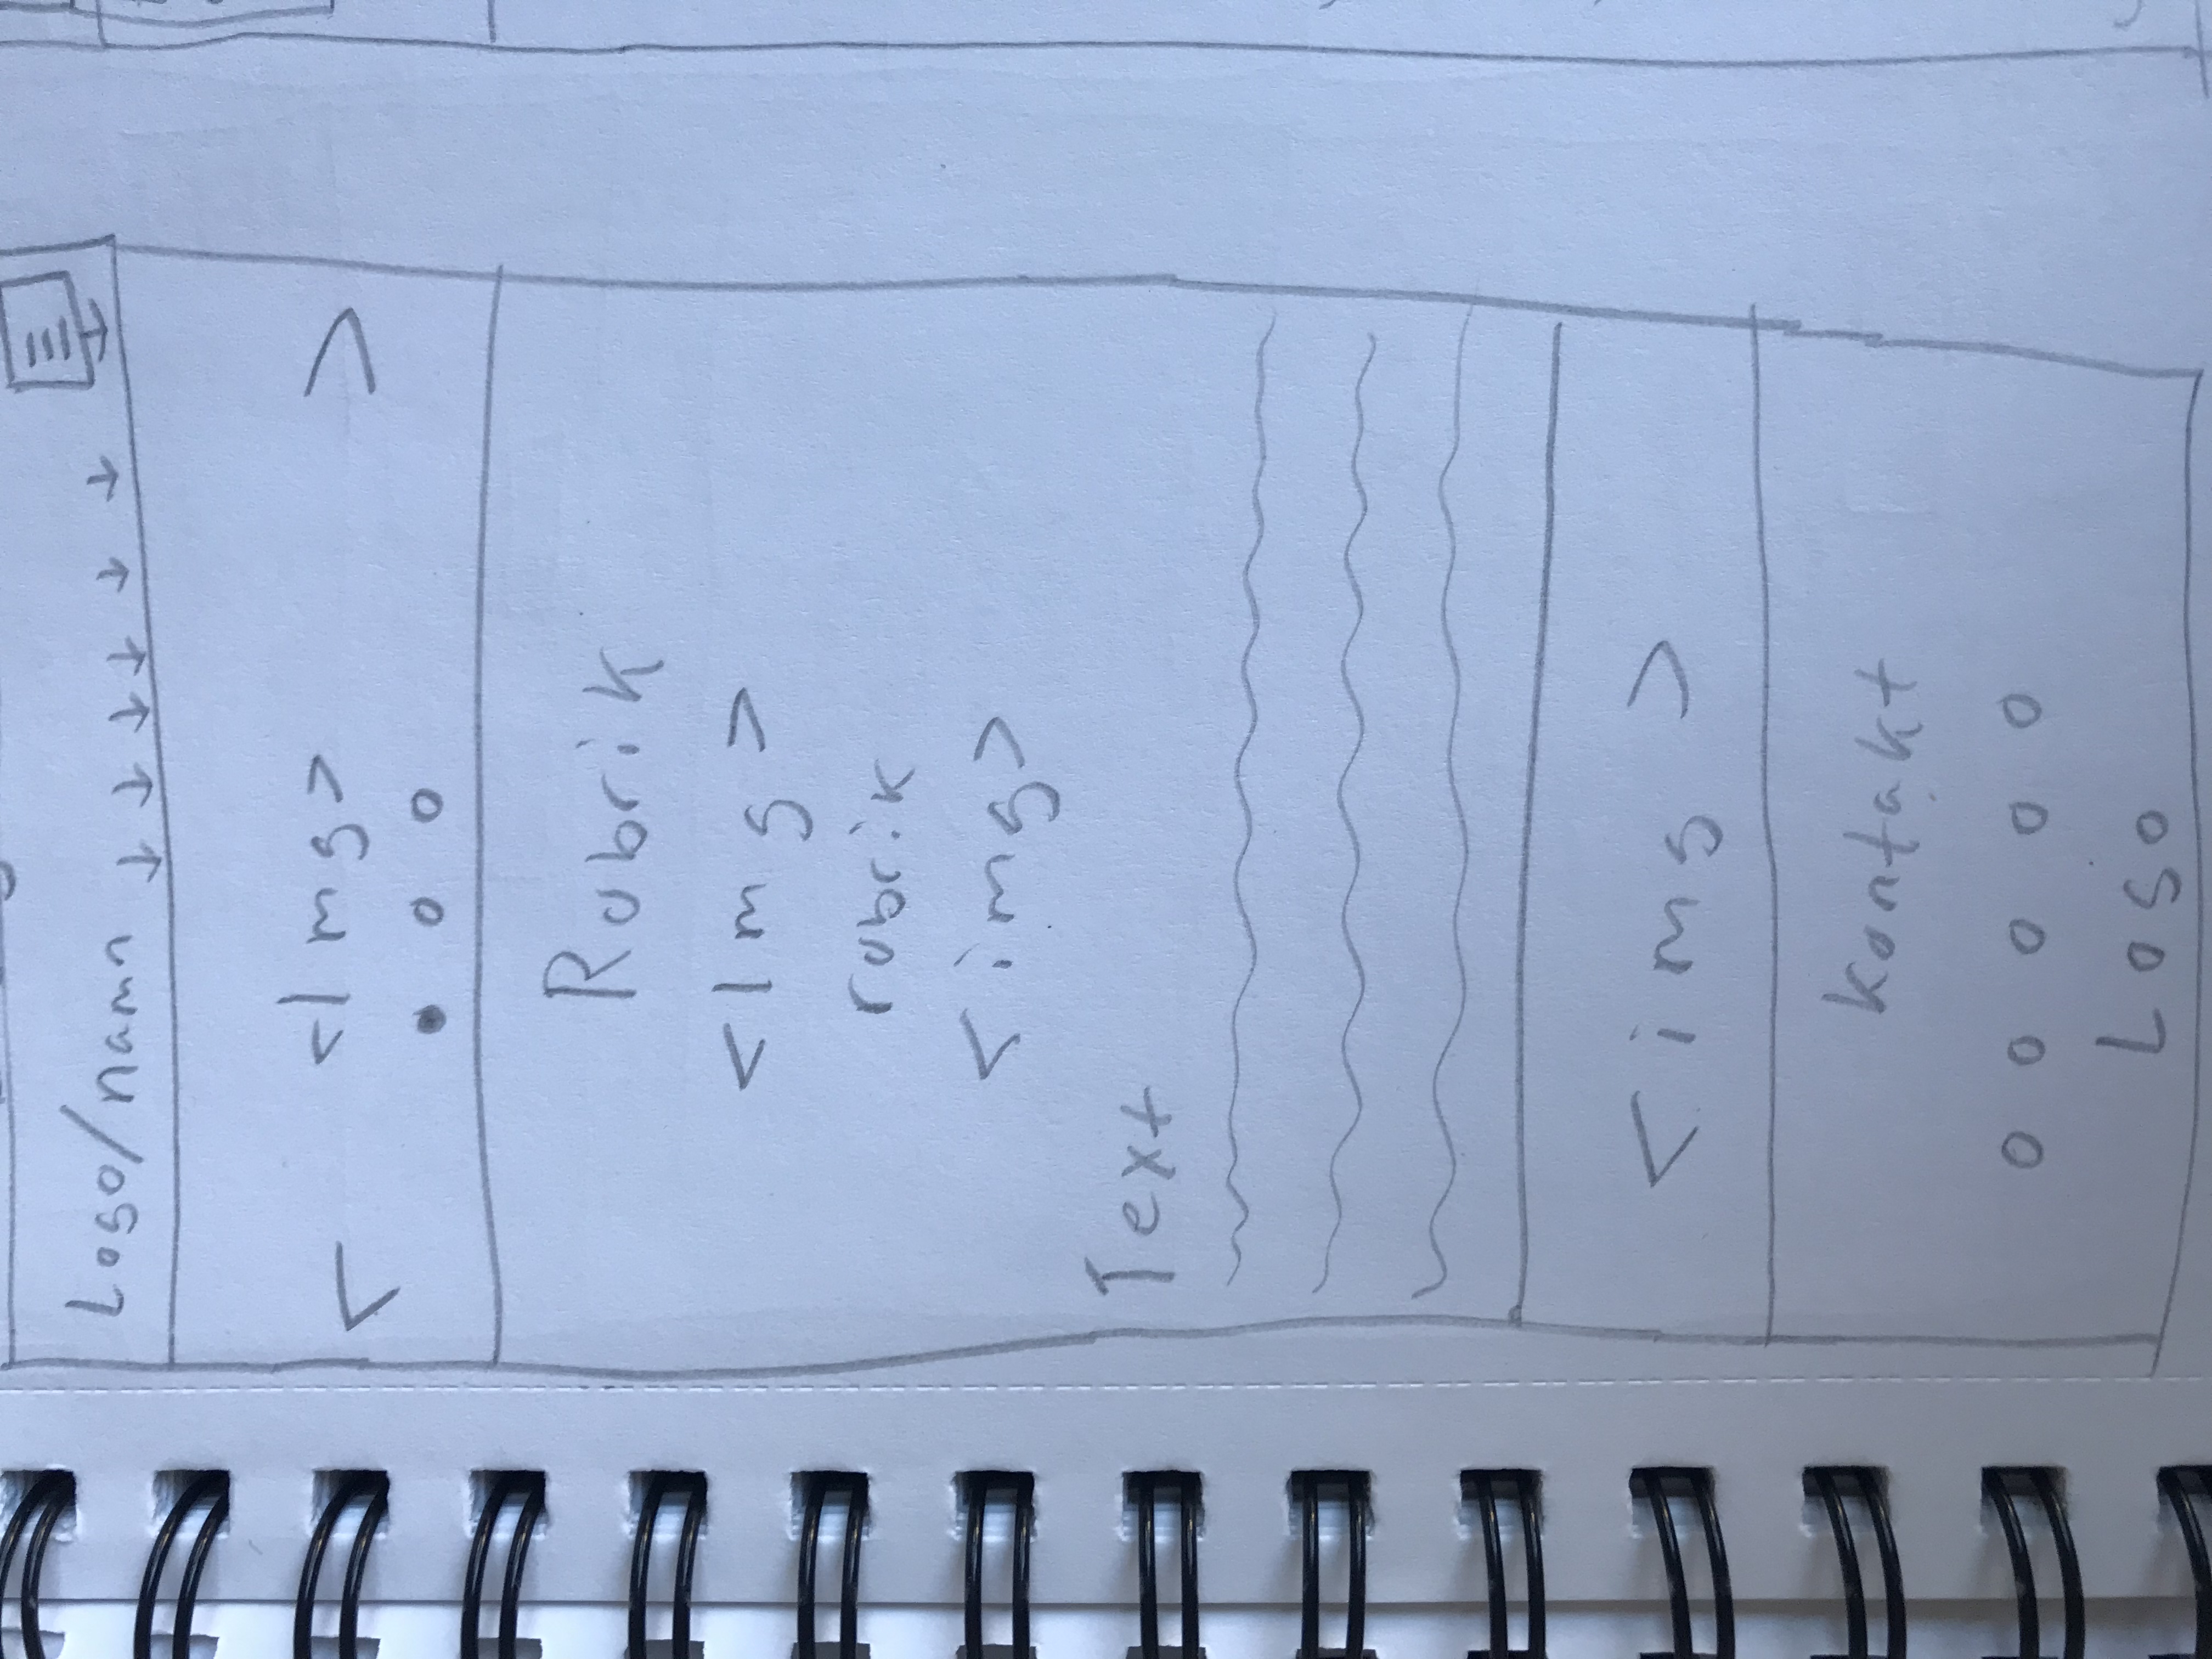 Logo/namn
<Img>
Rubrik
<Img>
rubrik
<img>
Text
<img>
kontakt
Logo